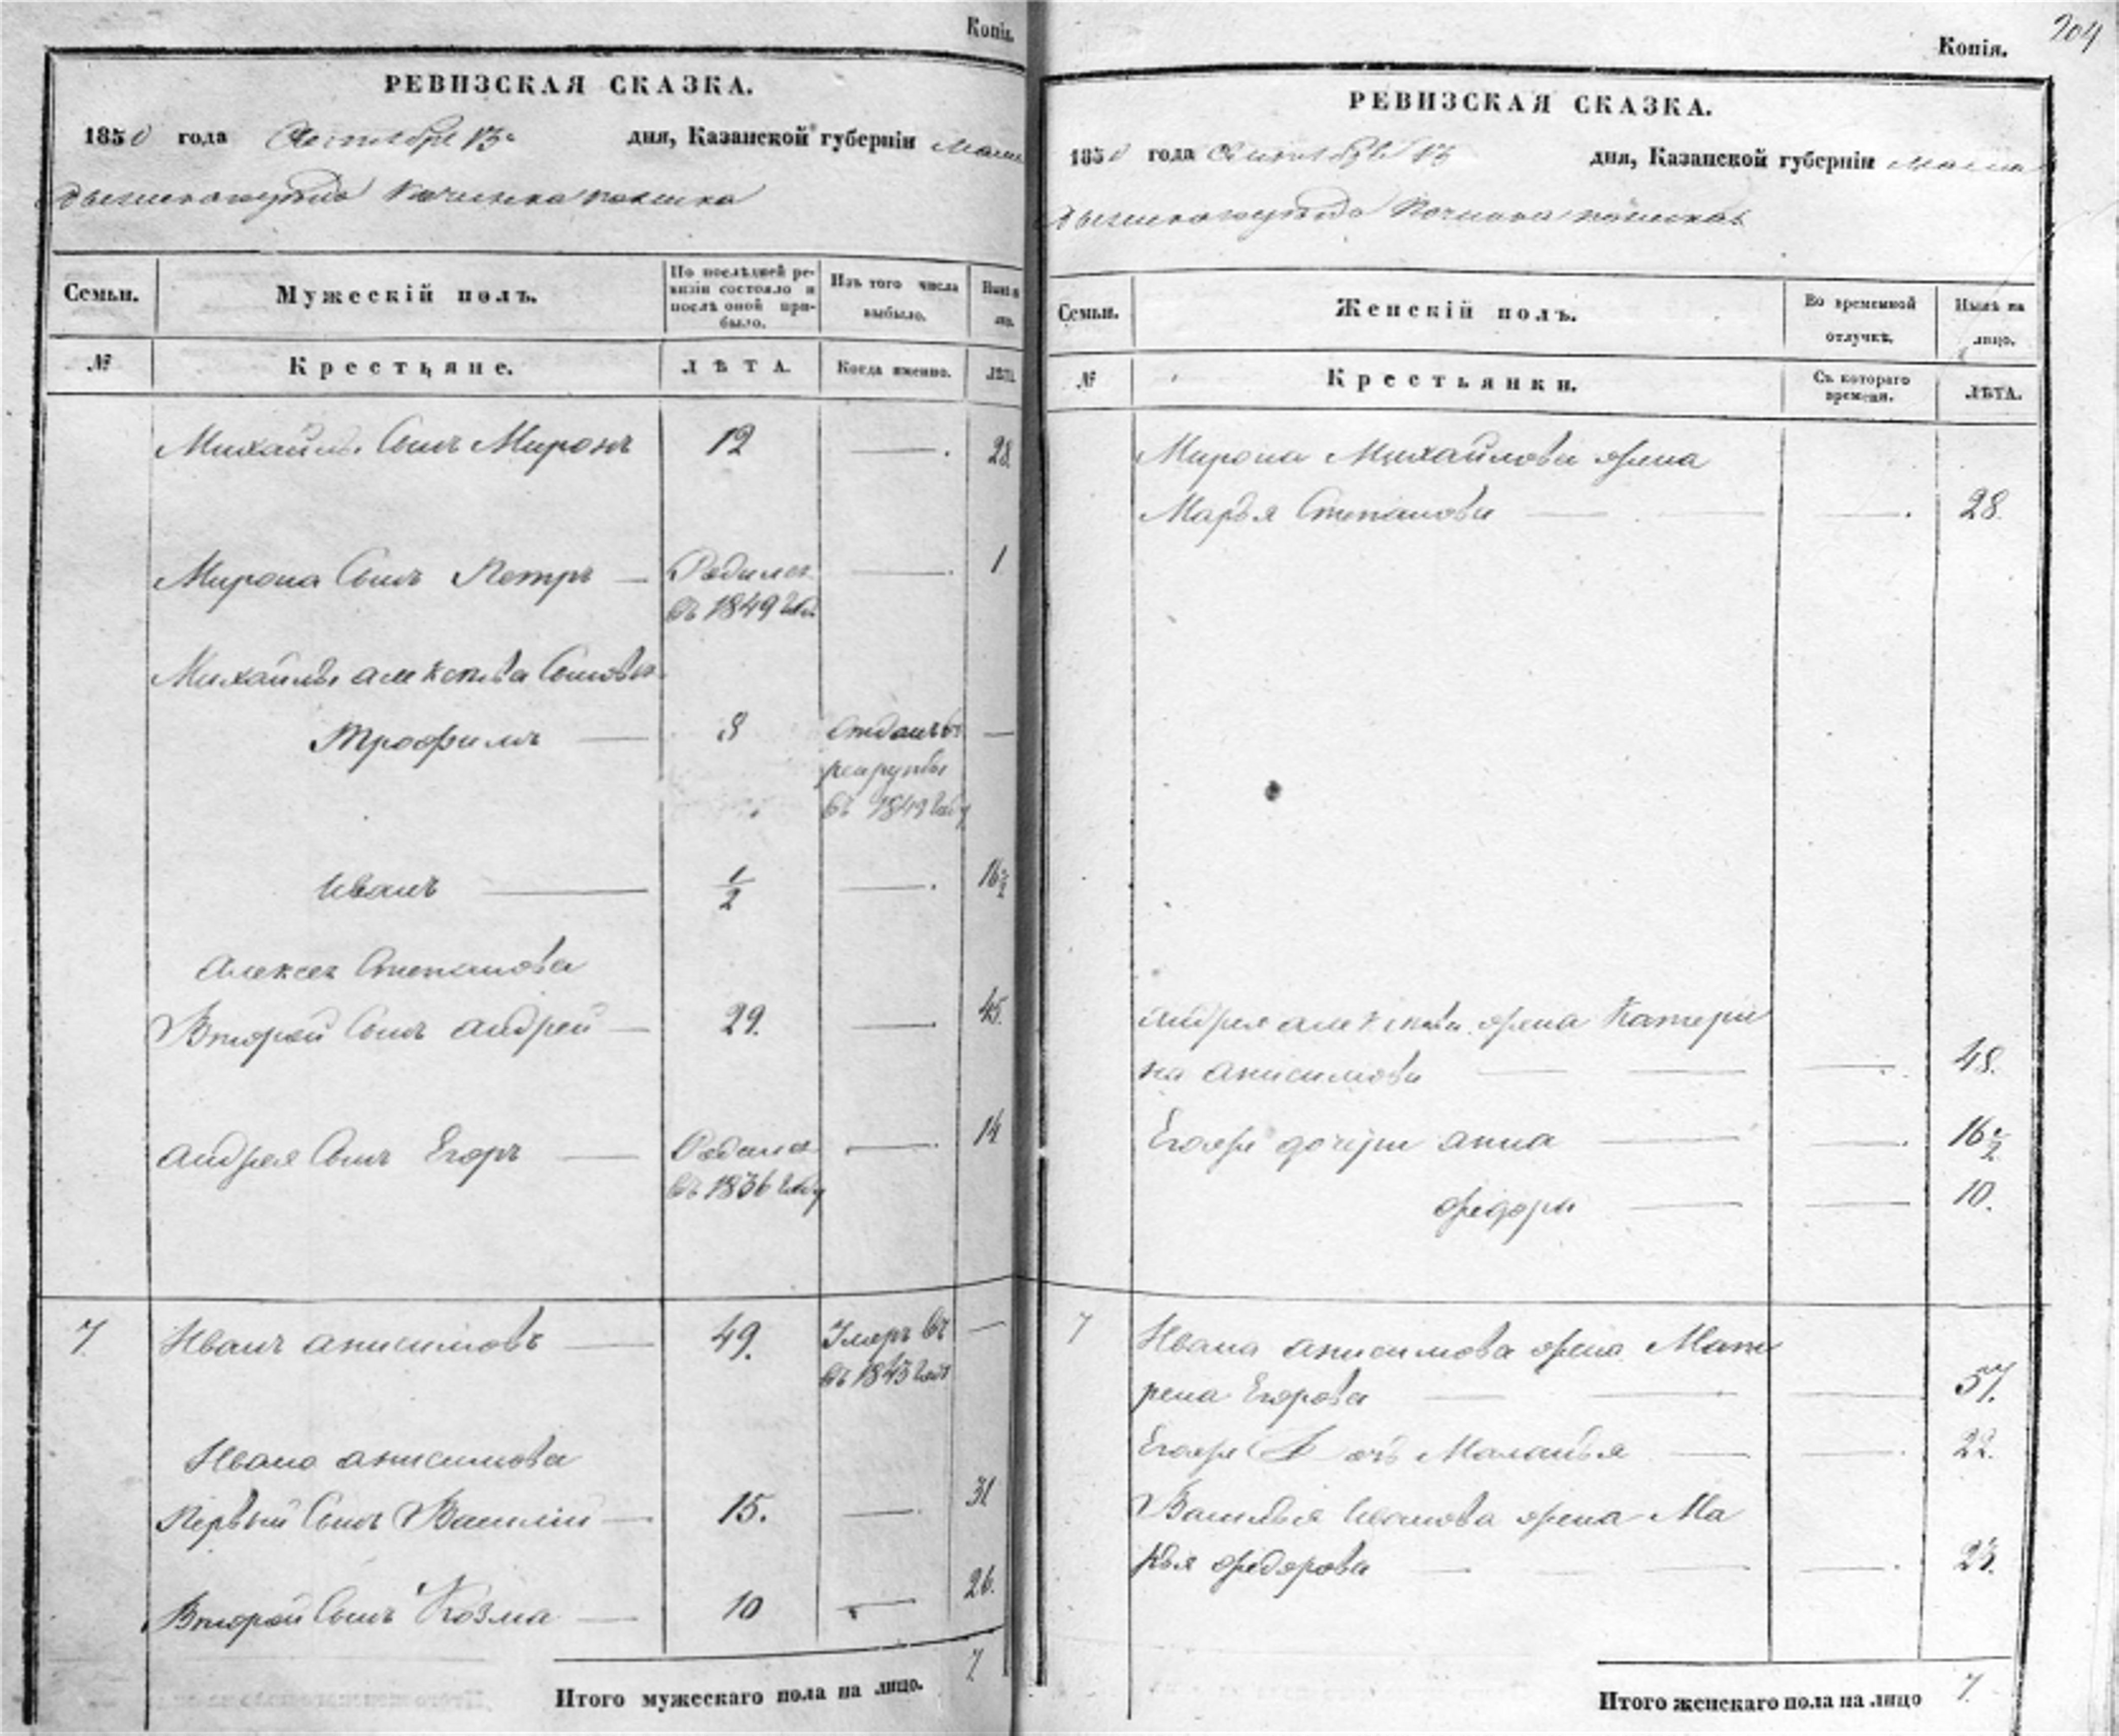 Копія.
РЕВИЗСКАЯ СКАЗКА.
1850 года Сентября 13 дня, Казанской губерніи Мама
дышскаго уѣзда Починка
Семьи. Мужескій полъ. По послѣдней ре-
визіи состояло и
послѣ оной при-
было. Изъ того числа
выбыло. Нынѣ на
лицо.
№ Крестьяне. ЛѢТА. Когда именно. ЛѢТА.
Михайлы Сынъ Миронъ 12 28
Мирона Сынъ Петръ Родился 1
въ 1849 году
Михайлы Алексѣева Сыновья
Трофимъ 8 Отданъ въ
рекруты
въ 1849 году
Иванъ 1/2 16 1/2
Алексея Степанова
Второй Сынъ Андрей 29. 45.
Андрея Сынъ Егоръ Родился 14
въ 1836 году
7 Иванъ Анисимовъ 49. Умеръ въ
въ 1843 году
Ивана Анисимова
Первый Сынъ Василій 15. 31
Второй Сынъ Козма 10 26.
Итого мужескаго пола на лицо. 7
204
Копія.
РЕВИЗСКАЯ СКАЗКА.
1850 года Сентября 13 дня, Казанской губерніи Мама
дышскаго уѣзда Починка
Семьи. Женскій полъ. Во временной
отлучкѣ. Нынѣ на
лицо.
№ Крестьянки. Съ котораго
времени. ЛѢТА.
Мирона Михайлова жена
Марья Степанова 28.
Андрея Алексѣева жена Катери
на Анисимова 48.
Егожъ дочери Анна 16 1/2
Федора 10.
7 Ивана Анисимова жена Мат
рена Егорова 57.
Егожъ Дочь Маланья 22.
Василья Иванова жена Ма
рья Федорова 23.
Итого женскаго пола на лицо 7.